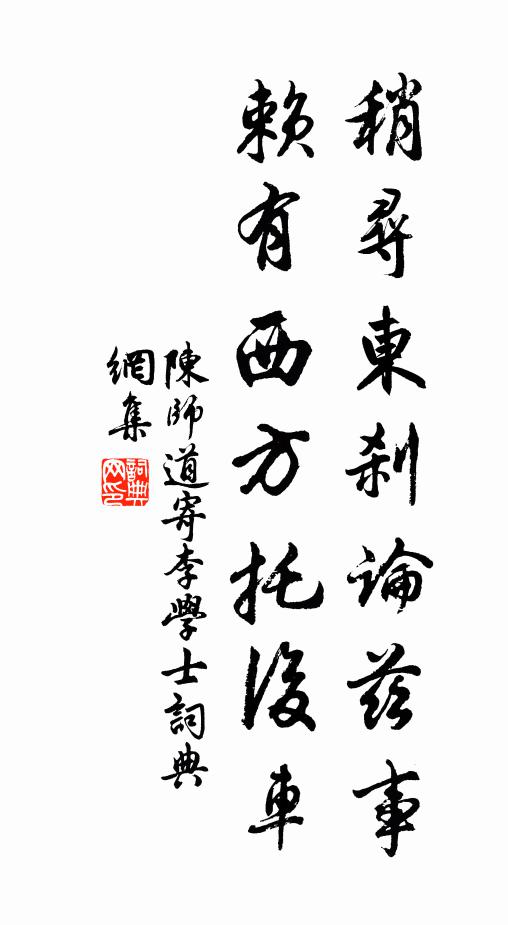 稍尋東刹論茲事
賴有西方托後車
陳師道寄李學士詞典
網集
詞典網印